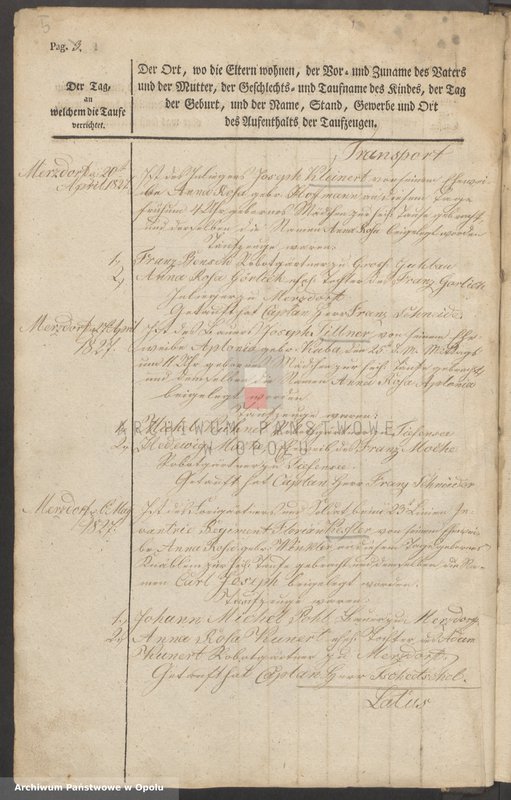 Pag. 3.
Der Tag,
an
welchem die Taufe
verrichtet.
Der Ort, wo die Eltern wohnen, der Vor- und Zuname des Vaters
und der Mutter, der Geschlechts- und Taufname des Kindes, der Tag
der Geburt, und der Name, Stand, Gewerbe und Ort
des Aufenthalts der Taufzeugen.
Transport
Merzdorf d. 20ten
April 1827.
Ist des Inliegers Joseph Kleinert von seinem Ehewei-
be Anna Rosa geb. Hofmann an diesem Tage
frühum 4 Uhr gebornes Mädchen zur heil. Taufe gebracht
und derselben die Namen Anna Rosa beigelegt worden
Taufzeugen waren:
1, Franz Robotgärtner zu Groß
2, Anna Rosa Görlich ehel. Tochter des Franz Görlich
Inlieger zu Merzdorf
Getauft hat Caplan Herr Franz Schneider
Merzdorf d. April
1827.
Ist des Bauers Joseph von seinem Ehe-
weibe Aplonia geb. den 25 d. M. Mittags
um 11 Uhr gebornes Mädchen zur heil. Taufe gebracht
und demselben die Namen Anna Rosa Aplonia
beigelegt worden
Taufzeugen waren:
1,
2, Hedewig Eheweib des Franz
Robotgärtner zu
Getauft hat Caplan Herr Franz Schneider
Merzdorf d. 6. May
1827.
Ist des Freigärtners und Soldat beim 23ten Linien In-
fanterie Regiment Florian von seinem Ehewei-
be Anna Rosa geb. Winkler an diesem Tage gebornes
Knäblein zur heil. Taufe gebracht und demselben die Na-
men Carl Joseph beigelegt worden.
Taufzeugen waren:
1, Johann Michel Pohl Bauer zu Merzdorf
2, Anna Rosa Kunert ehel. Tochter des Adam
Kunert Robotgärtner zu Merzdorf.
Getauft hat Caplan Herr
Latus
ARCHIWUM PAŃSTWOWE
W OPOLU
Archiwum Państwowe w Opolu